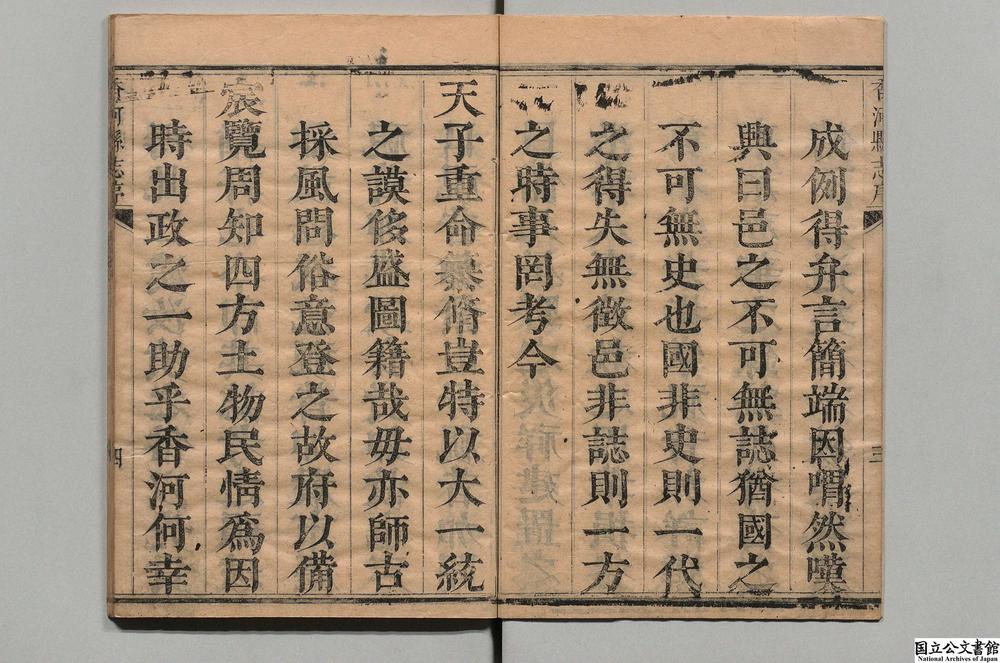 香河縣志序
三
成例得弁言簡端因喟然嘆
興曰邑之不可無誌猶國之
不可無史也國非史則一代
之得失無徵邑非誌則一方
之時事罔考今
天子重命纂脩豈特以大一統
之謨侈盛圖籍哉毋亦師古
採風問俗意登之故府以備
宸覽周知四方土物民情爲因
時出政之一助乎香河何幸
香河縣志序
四
国立公文書館
National Archives of Japan